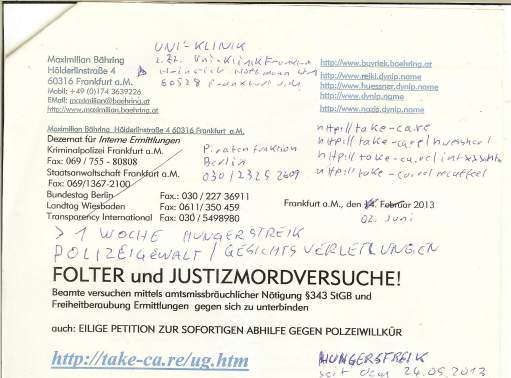 UNI-KLINIK
z.Zt. Uni-Klinik Frankfurt
60528 Frankfurt a.M.
Maximilian Bähring
Hölderlinstraße 4
60316 Frankfurt a.M.
Mobil: +49 (0)174 3639226
EMail: maximilian@boehring.at
http://www.maximilian.boehring.at
http://www.buvriek.boehring.at
http://www.reiki.dynip.name
http://www.huessner.dynip.name
http://www.dynip.name
http://www.nazis.dynip.name
Maximilian Bähring Hölderlinstraße 4 60316 Frankfurt a.M.
Dezernat für Interne Ermittlungen
Kriminalpolizei Frankfurt a.M.
Fax: 069 / 755 - 80808
Staatsanwaltschaft Frankfurt a.M.
Fax: 069/1367-2100
Bundestag Berlin Fax.: 030 / 227 36911
Landtag Wiesbaden Fax: 0611/ 350 459
Transparency International Fax: 030 / 5498980
Piratenfraktion
Berlin
030/2325 2609
http://take-ca.re
http://take-ca.re/
http://take-ca.re/
http://take-ca.re/
Frankfurt a.M., den 14. Februar 2013
02. Juni
> 1 WOCHE HUNGERSTREIK
POLIZEIGEWALT / GESICHTSVERLETZUNGEN
FOLTER und JUSTIZMORDVERSUCHE!
Beamte versuchen mittels amtsmissbräuchlicher Nötigung §343 StGB und
Freiheitberaubung Ermittlungen gegen sich zu unterbinden
auch: EILIGE PETITION ZUR SOFORTIGEN ABHILFE GEGEN POLZEIWILLKÜR
http://take-ca.re/ug.htm
HUNGERSTREIK
seit dem 24.05.2013